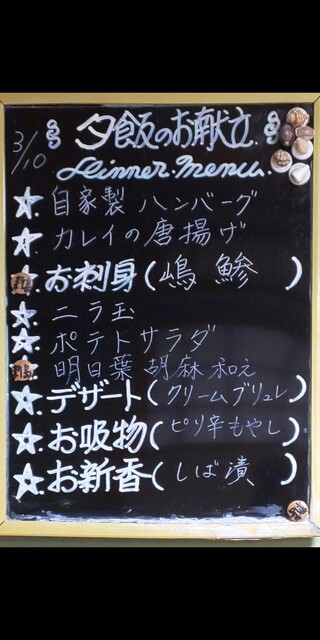 夕飯のお献立
3/10
Dinner.menu.
自家製 ハンバーグ
カレイの唐揚げ
お刺身(嶋鯵)
ニラ玉
ポテトサラダ
明日葉胡麻和え
デザート(クリームブリュレ)
お吸物(ピリ辛もやし)
お新香(しば漬)